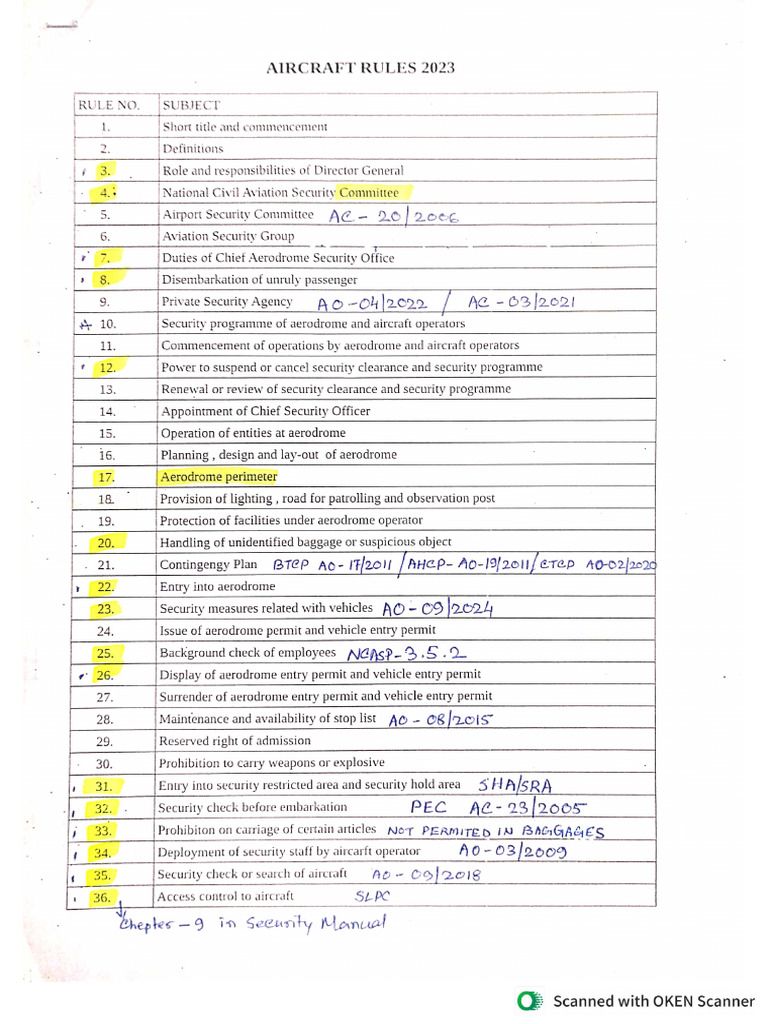 AIRCRAFT RULES 2023
RULE NO. SUBJECT
1. Short title and commencement
2. Definitions
3. Role and responsibilities of Director General
4. National Civil Aviation Security Committee
5. Airport Security Committee AC - 20/2006
6. Aviation Security Group
7. Duties of Chief Aerodrome Security Office
8. Disembarkation of unruly passenger
9. Private Security Agency AO - 04/2022 / AC - 03/2021
10. Security programme of aerodrome and aircraft operators
11. Commencement of operations by aerodrome and aircraft operators
12. Power to suspend or cancel security clearance and security programme
13. Renewal or review of security clearance and security programme
14. Appointment of Chief Security Officer
15. Operation of entities at aerodrome
16. Planning , design and lay-out of aerodrome
17. Aerodrome perimeter
18. Provision of lighting , road for patrolling and observation post
19. Protection of facilities under aerodrome operator
20. Handling of unidentified baggage or suspicious object
21. Contingengy Plan BTCP AO - 17/2011 / AHCP - AO - 19/2011 / CTCP AO-02/2020
22. Entry into aerodrome
23. Security measures related with vehicles AO - 09/2024
24. Issue of aerodrome permit and vehicle entry permit
25. Background check of employees NCASP - 3.5.2
26. Display of aerodrome entry permit and vehicle entry permit
27. Surrender of aerodrome entry permit and vehicle entry permit
28. Maintenance and availability of stop list AO - 08/2015
29. Reserved right of admission
30. Prohibition to carry weapons or explosive
31. Entry into security restricted area and security hold area SHA/SRA
32. Security check before embarkation PEC AC - 23/2005
33. Prohibiton on carriage of certain articles NOT PERMITED IN BAGGAGES
34. Deployment of security staff by aircarft operator AO - 03/2009
35. Security check or search of aircraft AO - 09/2018
36. Access control to aircraft SLPC
Chepter - 9 in Security Manual
Scanned with OKEN Scanner